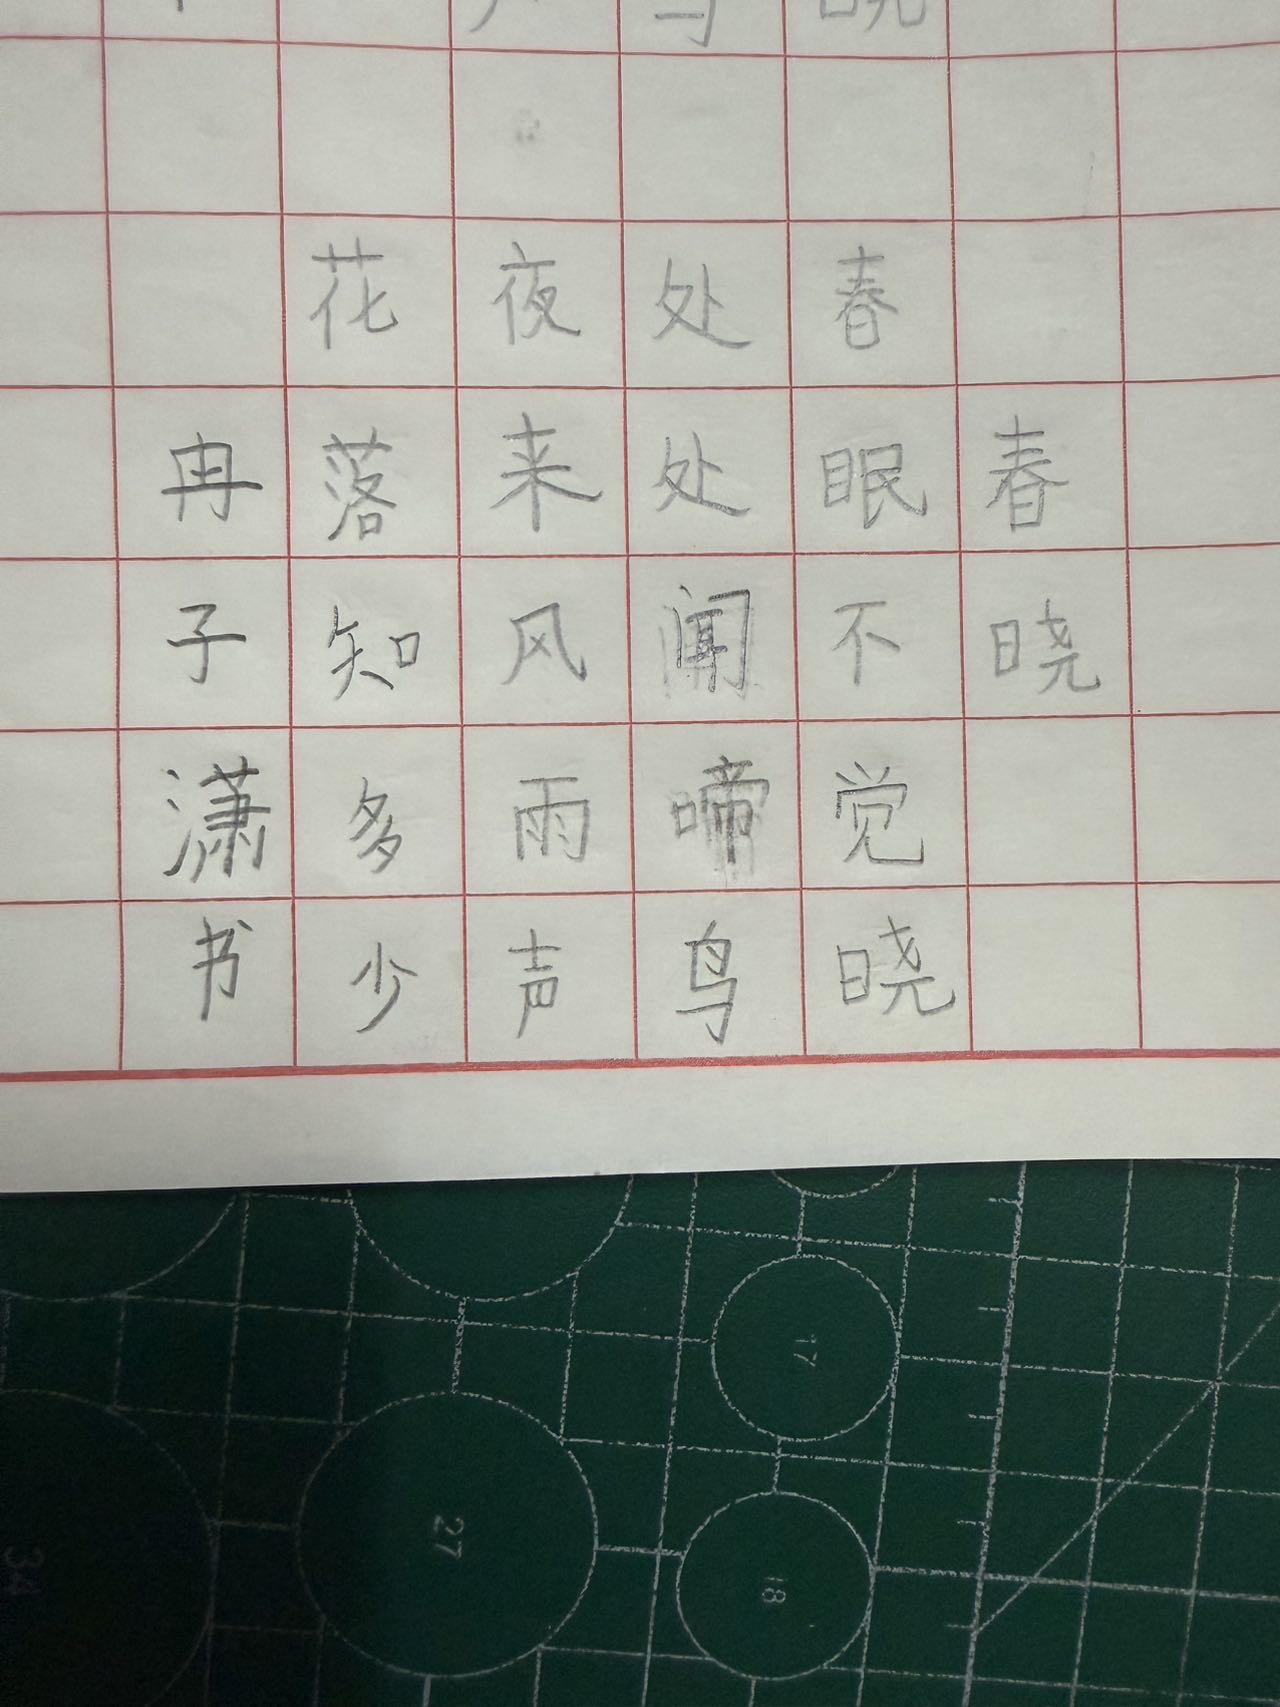 春晓
春眠不觉晓
处处闻啼鸟
夜来风雨声
花落知多少
冉子潇书
17
27
18
34